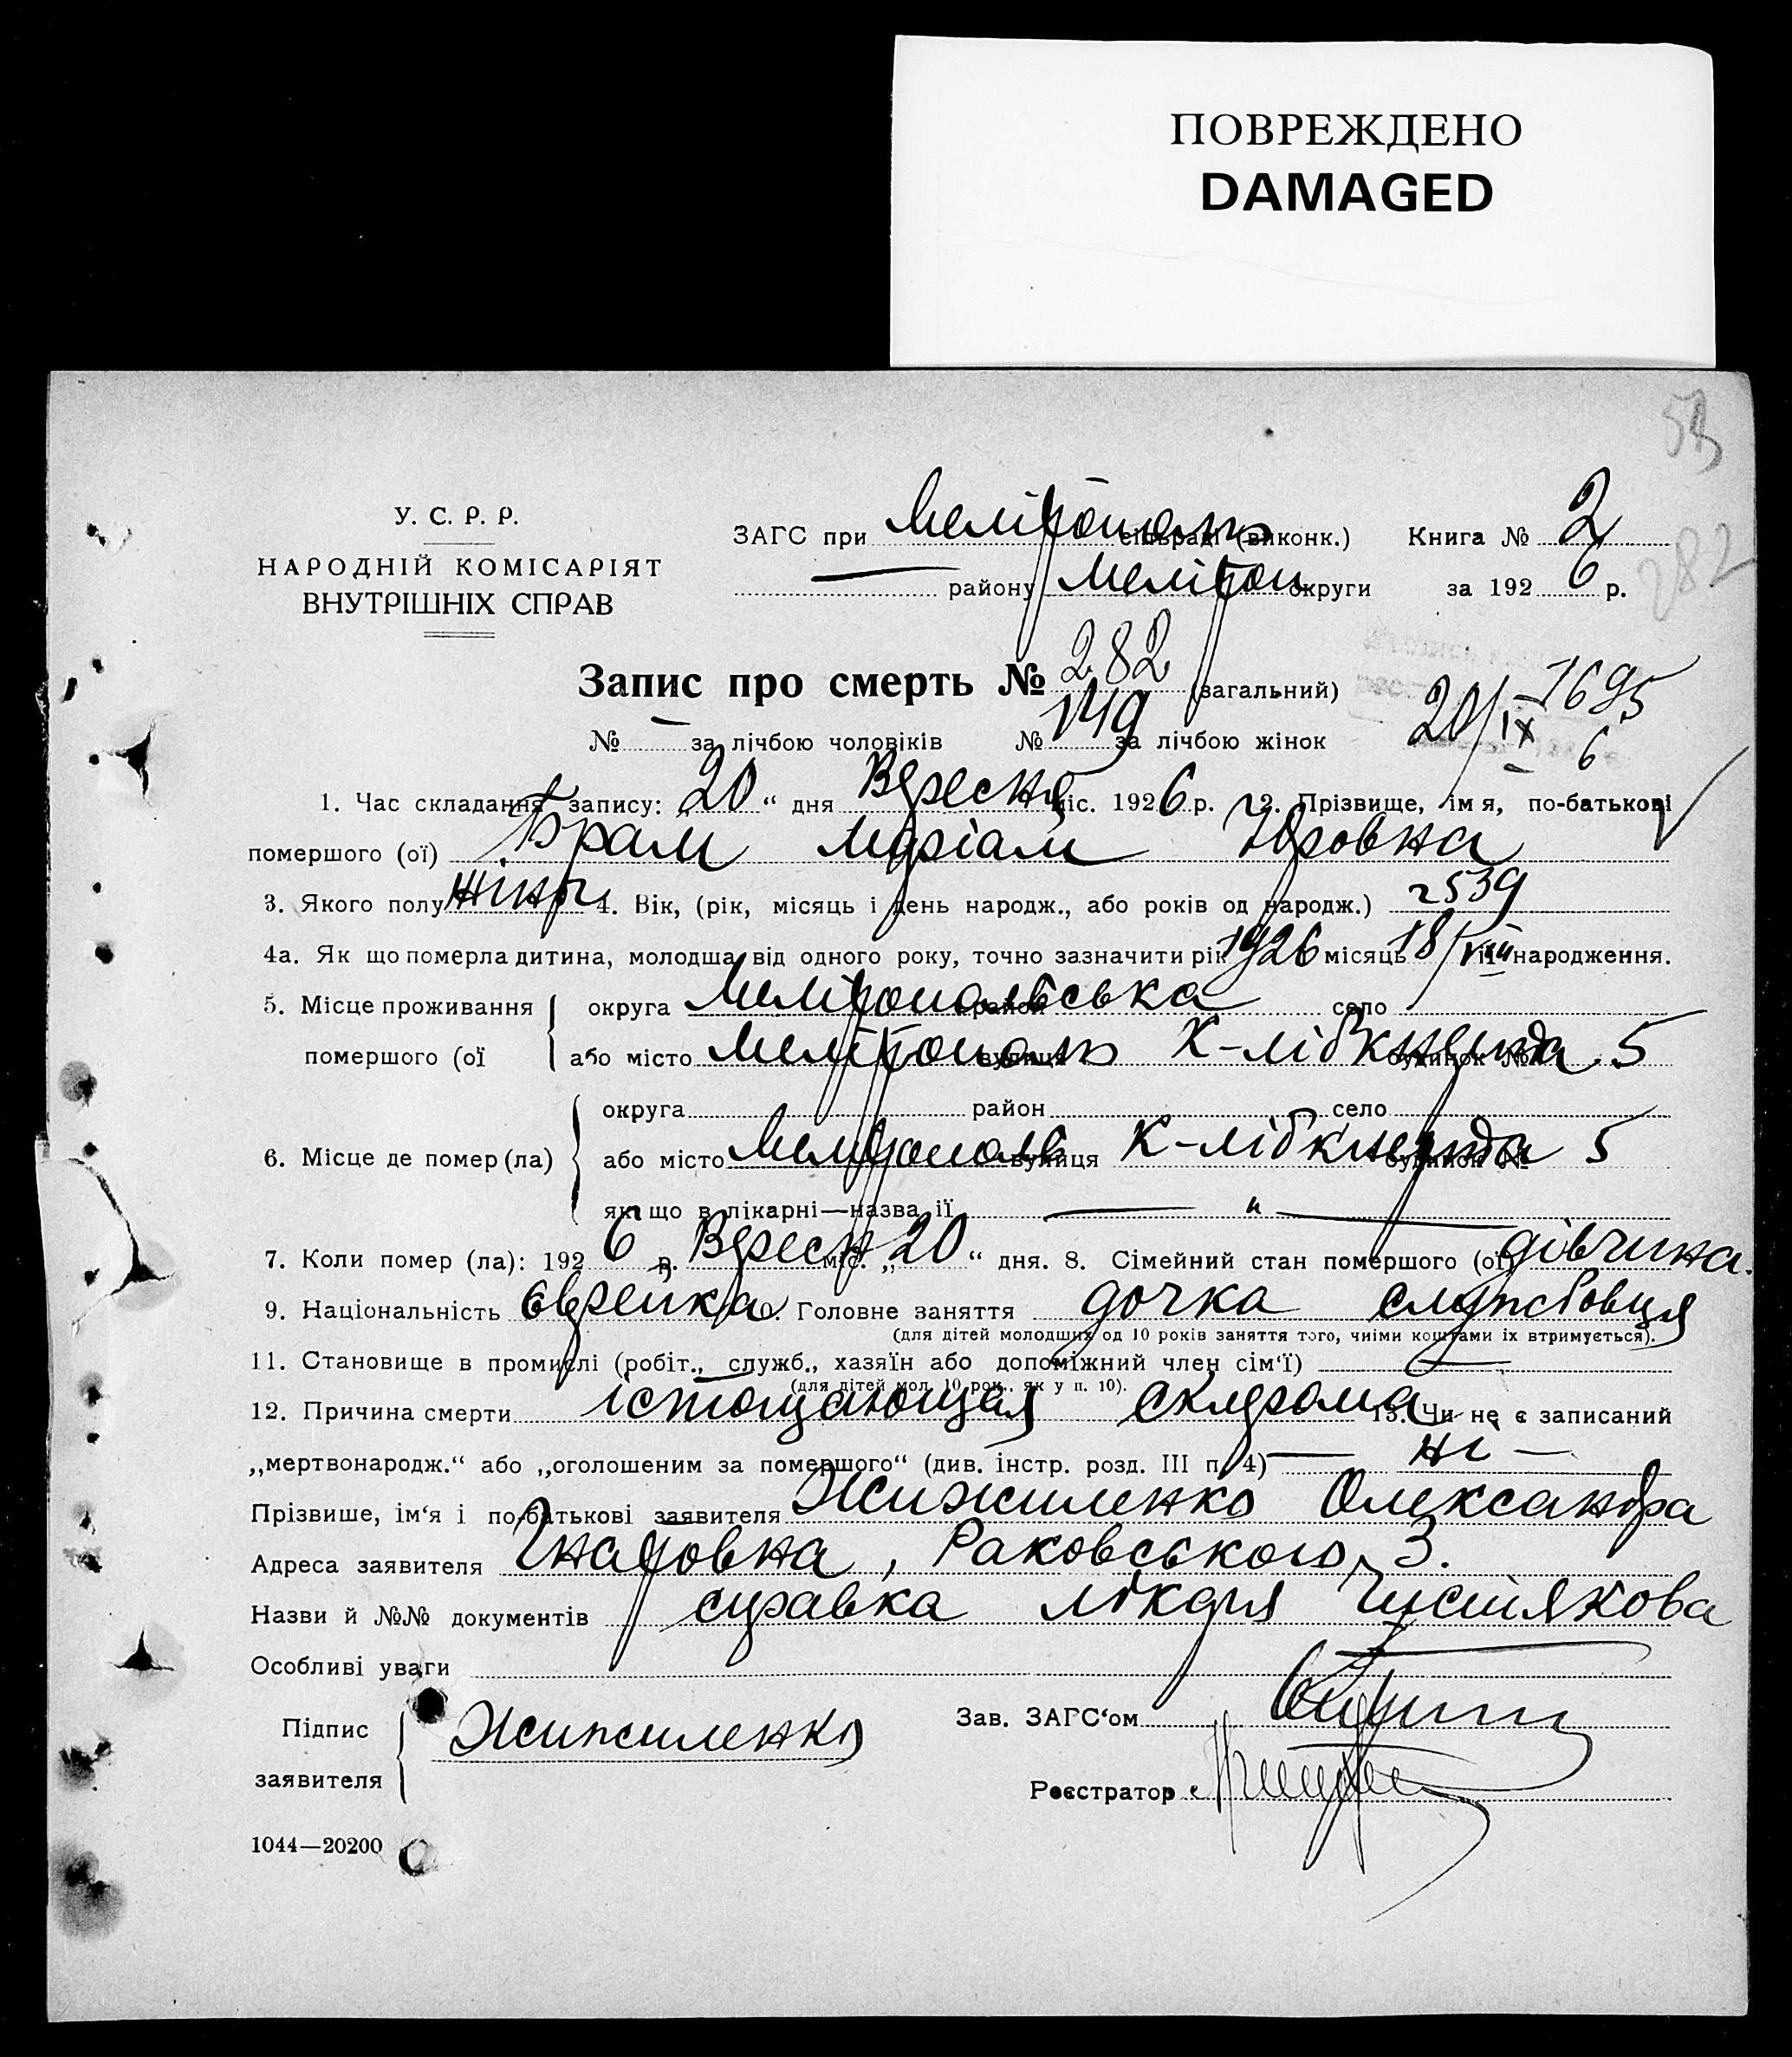 ПОВРЕЖДЕНО
DAMAGED
53
282
У. С. Р. Р.
НАРОДНІЙ КОМІСАРІЯТ
ВНУТРІШНІХ СПРАВ
ЗАГС при Мелітополь сільраді (виконк.) Книга № 2
— району Меліtоп округи за 192 6 р.
Запис про смерть № 282 (загальний)
1695
20/IX 6
№ — за лічбою чоловіків № 149 за лічбою жінок
1. Час складання запису: 20 “ дня Вересня міс. 192 6 р. 2. Прізвище, імя, по-батькові
помершого (ої) Брам Маріам
3. Якого полу жіноч 4. Вік, (рік, місяць і день народж., або років од народж.)
4а. Як що померла дитина, молодша від одного року, точно зазначити рік 1926 місяць 18/VIII народження.
5. Місце проживання округа Мелітопольська район село
помершого (ої або місто Мелітополь вулиця К-Лібкнехта будинок № 5
округа район село
6. Місце де помер (ла) або місто Мелітополь вулиця К-Лібкнехта будинок № 5
як що в лікарні—назва її — „ —
7. Коли помер (ла): 192 6 р. Вересн міс. „ 20 “ дня. 8. Сімейний стан помершого (ої) дівчина.
9. Національність єврейка 10. Головне заняття дочка службовця
(для дітей молодших од 10 років заняття того, чиїми коштами їх втримується).
11. Становище в промислі (робіт., служб., хазяїн або допоміжний член сім‘ї) —
(для дітей мол. 10 рок., як у п. 10).
12. Причина смерти істощающая склерома 13. Чи не є записаний
„мертвонародж.“ або „оголошеним за помершого“ (див. інстр. розд. III п. 4) — ні —
Прізвише, ім‘я і по-батькові заявителя Жижиленко Олександра
Адреса заявителя Гнатовна, Раковського, 3.
Назви й №№ документів справка лікаря Чистякова
Особливі уваги
Підпис
заявителя
Жижиленко
Зав. ЗАГС‘ом
Реєстратор
1044—20200